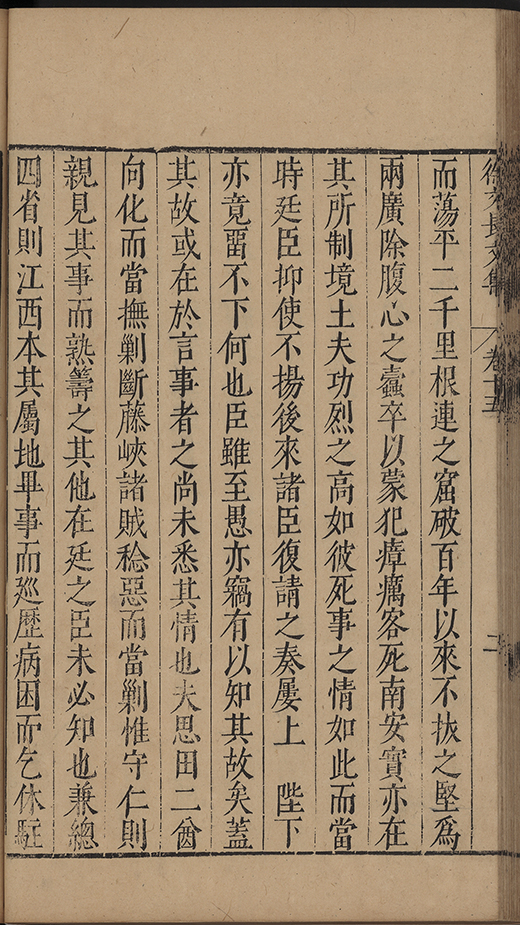 徐文長文集 卷十五 二
而蕩平二千里根連之窟破百年以來不拔之堅爲
兩廣除腹心之蠧卒以蒙犯瘴癘客死南安實亦在
其所制境土夫功烈之高如彼死事之情如此而當
時廷臣抑使不揚後來諸臣復請之奏屢上　陛下
亦竟畱不下何也臣雖至愚亦竊有以知其故矣葢
其故或在於言事者之尚未悉其情也夫思田二酋
向化而當撫剿斷藤峽諸賊稔惡而當剿惟守仁則
親見其事而熟籌之其他在廷之臣未必知也兼總
四省則江西本其屬地畢事而廵歷病困而乞休駐